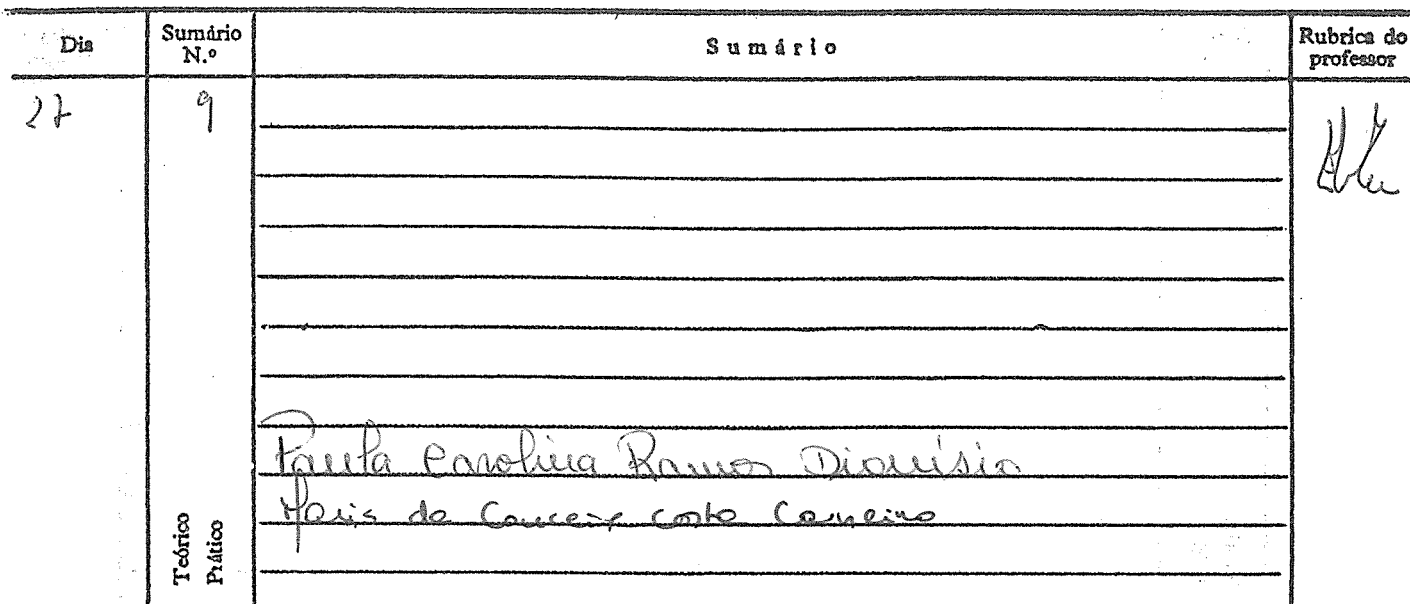 Dia Sumário N.º Sumário Rubrica do professor
27 9
Paula Carolina Ramos Dionísio
Maria da Costa Carneiro
Teórico
Prático